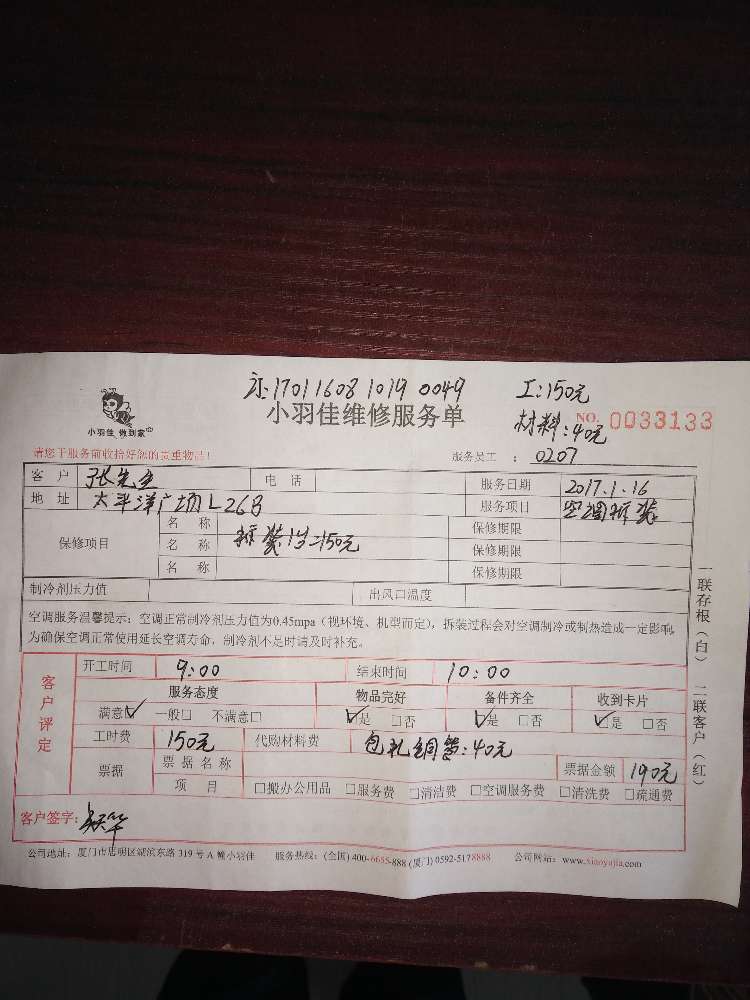 17011608 1019 0049
工:150元
小羽佳 做到家
小羽佳维修服务单
材料:40元
NO. 0033133
请您于服务前收拾好您的贵重物品!
服务员工 : 0207
客 户 张先生 电 话 服务日期 2017.1.16
地 址 太平洋广场L26B 服务项目 空调拆装
保修项目
名 称 保修期限
名 称 拆装1台=150元 保修期限
名 称 保修期限
制冷剂压力值 出风口温度
空调服务温馨提示:空调正常制冷剂压力值为0.45mpa(视环境、机型而定),拆装过程会对空调制冷或制热造成一定影响,
为确保空调正常使用延长空调寿命,制冷剂不足时请及时补充。
客户评定
开工时间 9:00 结束时间 10:00
服务态度 物品完好 备件齐全 收到卡片
满意☑ 一般□ 不满意□ ☑是 □否 ☑是 □否 ☑是 □否
工时费 150元 代购材料费 包扎铜管:40元
票据 票据名称 票据金额 190元
项 目 □搬办公用品 □服务费 □清洁费 □空调服务费 □清洗费 □疏通费
客户签字:
公司地址:厦门市思明区湖滨东路 319 号 A 幢小羽佳 服务热线:(全国) 400-6655-888 (厦门) 0592-5178888 公司网站:www.xiaoyujia.com
一联存根(白) 二联客户(红)